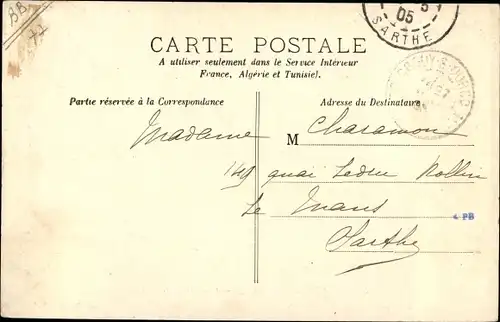 BB
72
05
SARTHE
CARTE POSTALE
A utiliser seulement dans le Service Intérieur
France, Algérie et Tunisie).
Partie réservée à la Correspondance
Adresse du Destinataire
Madame
M Charamon
149 quai Ledru Rollin
Le Mans
Sarthe
PB